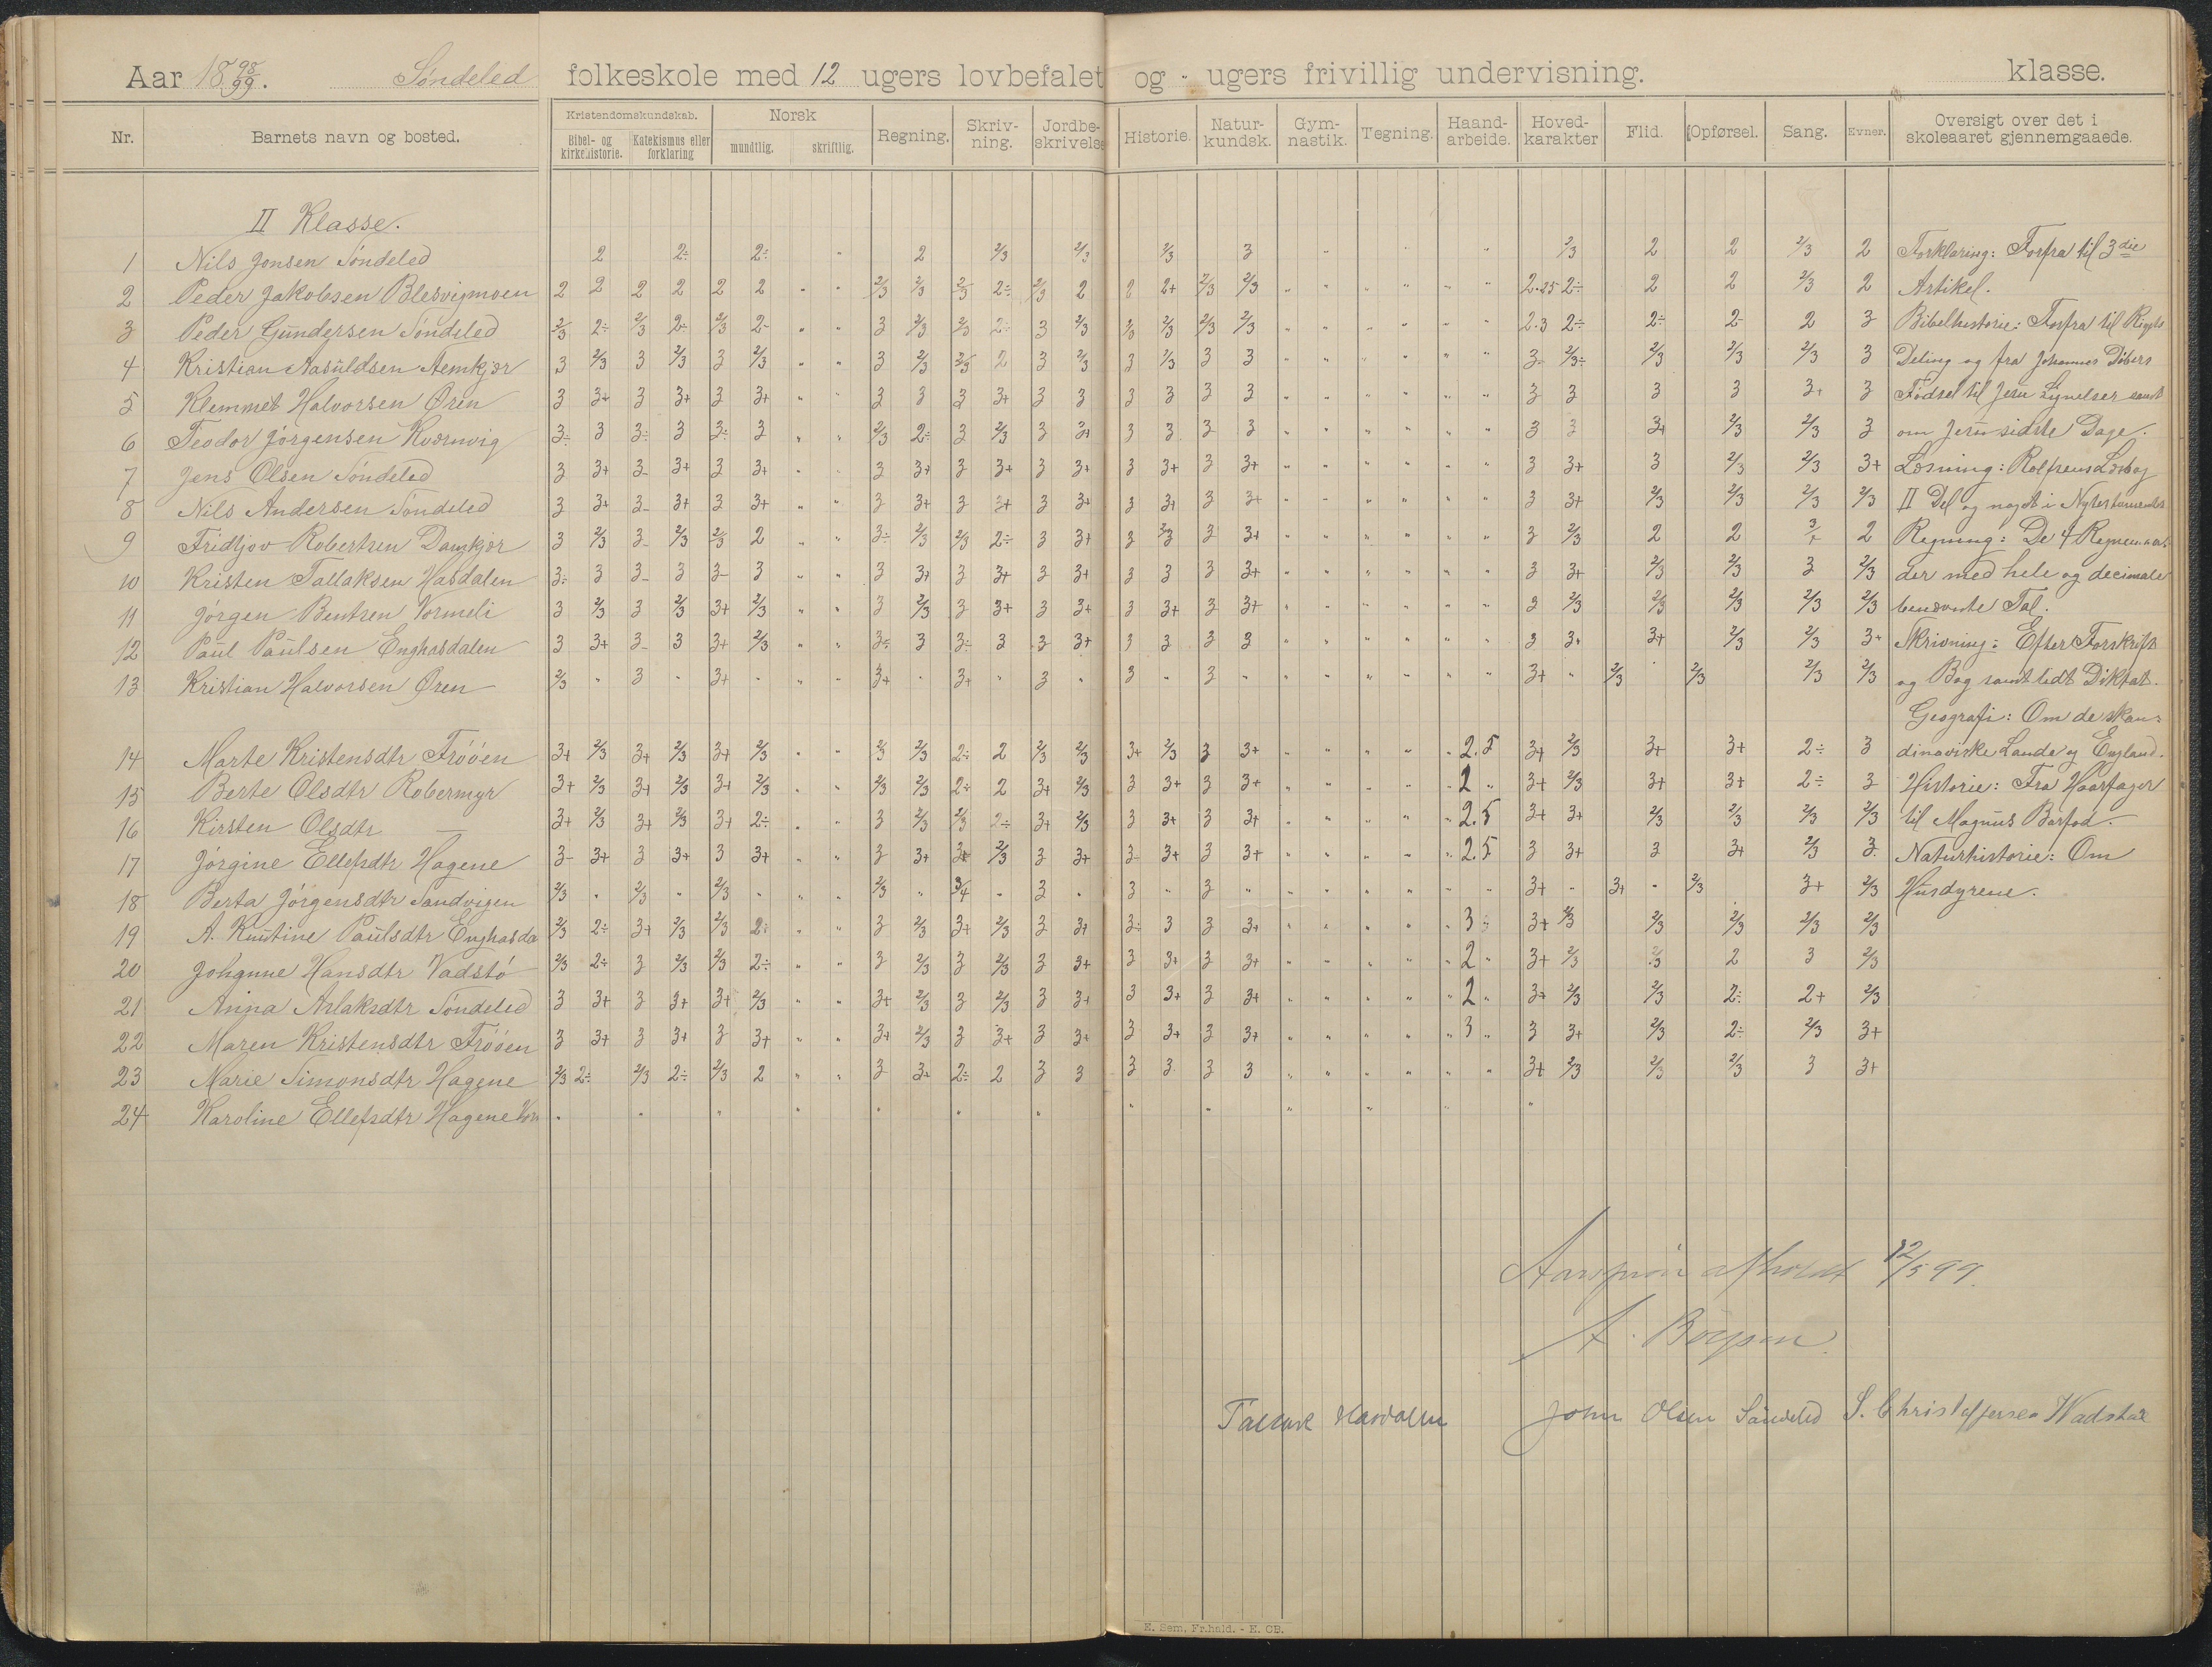 Aar 18 98/99. Søndeled folkeskole med 12 ugers lovbefalet og " ugers frivillig undervisning. klasse.
Nr. Barnets navn og bosted. Kristendomskundskab. Bibel- og kirkehistorie. Katekismus eller forklaring Norsk mundtlig. skriftlig. Regning. Skriv- ning. Jordbe- skrivelse Historie. Natur- kundsk. Gym- nastik. Tegning. Haand- arbeide. Hoved- karakter Flid. Opførsel. Sang. Evner. Oversigt over det i skoleaaret gjennemgaaede.
II Klasse.
1 Nils Jonsen Søndeled 2 2÷ 2÷ " 2 2/3 2/3 2/3 3 " " " 2/3 2 2 2/3 2
2 Peder Jakobsen Blesvigmoen 2 2 2 2 2 2 " " 2/3 2/3 2/3 2÷ 2/3 2 2 2+ 2/3 2/3 " " " " " " 2.25 2÷ 2 2 2/3 2
3 Peder Gundersen Søndeled 2/3 2÷ 2/3 2÷ 2/3 2- " " 3 2/3 2/3 2÷ 3 2/3 2/3 2/3 2/3 2/3 " " " " " " 2.3 2÷ 2÷ 2- 2 3
4 Kristian Aasuldsen Aemkjær 3 2/3 3 2/3 3 2/3 " " 3 2/3 2/3 2 3 2/3 3 2/3 3 3 " " " " " " 3- 2/3÷ 2/3 2/3 2/3 3
5 Klemmet Halvorsen Øren 3 3+ 3 3+ 3 3+ " " 3 3 3 3+ 3 3 3 3 3 3 " " " " " " 3 3 3 3 3+ 3
6 Teodor Jørgensen Kværnvig 3÷ 3 3÷ 3 3÷ 3 " " 2/3 2÷ 3 2/3 3 3+ 3 3 3 3 " " " " " " 3 3 3+ 2/3 2/3 3
7 Jens Olsen Søndeled 3 3+ 3- 3+ 3 3+ " " 3 3+ 3 3+ 3 3+ 3 3+ 3 3+ " " " " " " 3 3+ 3 2/3 2/3 3+
8 Nils Andersen Søndeled 3 3+ 3- 3+ 3 3+ " " 3 3+ 3 3+ 3 3+ 3 3+ 3 3+ " " " " " " 3 3+ 2/3 2/3 2/3 2/3
9 Fridtjov Robertsen Damkjær 3 2/3 3- 2/3 2/3 2 " " 3÷ 2/3 2/3 2÷ 3 3+ 3 2/3 3 3+ " " " " " " 3 2/3 2 2 3+ 2
10 Kristen Tallaksen Hasdalen 3÷ 3 3- 3 3- 3 " " 3 3+ 3 3+ 3 3+ 3 3 3 3+ " " " " " " 3 3+ 2/3 2/3 3 2/3
11 Jørgen Bentsen Vormeli 3 2/3 3 2/3 3+ 2/3 " " 3 2/3 3 3+ 3 3+ 3 3+ 3 3+ " " " " " " 3 2/3 2/3 2/3 2/3 2/3
12 Paul Paulsen Enghasdalen 3 3+ 3- 3 3+ 2/3 " " 3÷ 3 3÷ 3 3 3+ 3 3 3 3 " " " " " " 3 3+ 3+ 2/3 2/3 3+
13 Kristian Halvorsen Øren 2/3 " 3 " 3+ " " " 3+ " 3+ " 3 " 3 " 3 " " " " " " " 3+ " 2/3 2/3 2/3 2/3
14 Marte Kristensdtr Frøöen 3+ 2/3 3+ 2/3 3+ 2/3 " " 2/3 2/3 2÷ 2 2/3 2/3 3+ 2/3 3 3+ " " " " " 2.5 3+ 2/3 3+ 3+ 2÷ 3
15 Berte Olsdtr Robermyr 3+ 2/3 3+ 2/3 3+ 2/3 " " 2/3 2/3 2÷ 2 3+ 2/3 3 3+ 3 3+ " " " " 2 " 3+ 2/3 3+ 3+ 2÷ 3
16 Kirsten Olsdtr — 3+ 2/3 3+ 2/3 3+ 2÷ " " 3 2/3 2/3 2÷ 3+ 2/3 3 3+ 3 3+ " " " " " 2.5 3+ 3+ 2/3 2/3 2/3 2/3
17 Jørgine Ellefsdtr Hagene 3- 3+ 3 3+ 3 3+ " " 3 3+ 3+ 2/3 3 3+ 3- 3+ 3 3+ " " " " " 2.5 3 3+ 3 3+ 2/3 3
18 Berta Jørgensdtr Sandvigen 2/3 " 2/3 " 2/3 " " " 2/3 " 3/4 " 3 " 3 " 3 " " " " " " " 3+ " 3+ " 2/3 3+ 2/3
19 A. Knutine Paulsdtr Enghasda 2/3 2÷ 3+ 2/3 2/3 2÷ " " 3 2/3 3+ 2/3 3 3+ 3÷ 3 3 3+ " " " " " 3 3+ 2/3 2/3 2/3 2/3 2/3
20 Johanne Hansdtr Vadstö 2/3 2÷ 3 2/3 2/3 2÷ " " 3 2/3 3 2/3 3 3+ 3 3+ 3 3+ " " " " " 2 " 3+ 2/3 2/3 2 3 2/3
21 Anna Aslaksdtr Søndeled 3 3+ 3 3+ 3+ 2/3 " " 3+ 2/3 3 2/3 3 3+ 3 3+ 3 3+ " " " " " 2 " 3+ 2/3 2/3 2÷ 2+ 2/3
22 Maren Kristensdtr Frøöen 3 3+ 3 3+ 3 3+ " " 3+ 2/3 3 3+ 3 3+ 3 3+ 3 3+ " " " " " 3 " 3 3+ 2/3 2÷ 2/3 3+
23 Marie Simonsdtr Hagene 2/3 2÷ 2/3 2÷ 2/3 2 " " 3 3+ 2÷ 2 3 3 3 3 3 3 " " " " " " 3+ 2/3 2/3 2/3 3 3+
24 Karoline Ellefsdtr Hagene " " " " " " " " " " " " "
Forklaring: Forfra til 3die
Artikel.
Bibelhistorie: Forfra til Rigets
Deling og fra Johannes Døbers
Fødsel til Jesu Lignelser samt
om Jesu sidste Dage.
Læsning: Rolfsens Læsebog
II Del og noget i Nytestamentet
Regning: De 4 Regnearter
der med hele og decimale
benævnte Tal.
Skrivning: Efter Forskrift
og Bog samt lidt Diktat.
Geografi: Om de skan-
dinaviske Lande og England.
Historie: Fra Haarfager
til Magnus Barfod.
Naturhistorie: Om
Husdyrene.
Aarsprøve afholdt 12/5 99.
A.
Tallak Hasdalen John Olsen Søndeled S. Christoffersen Wadstøe
E. Sem, Fr.hald. - E. CB.